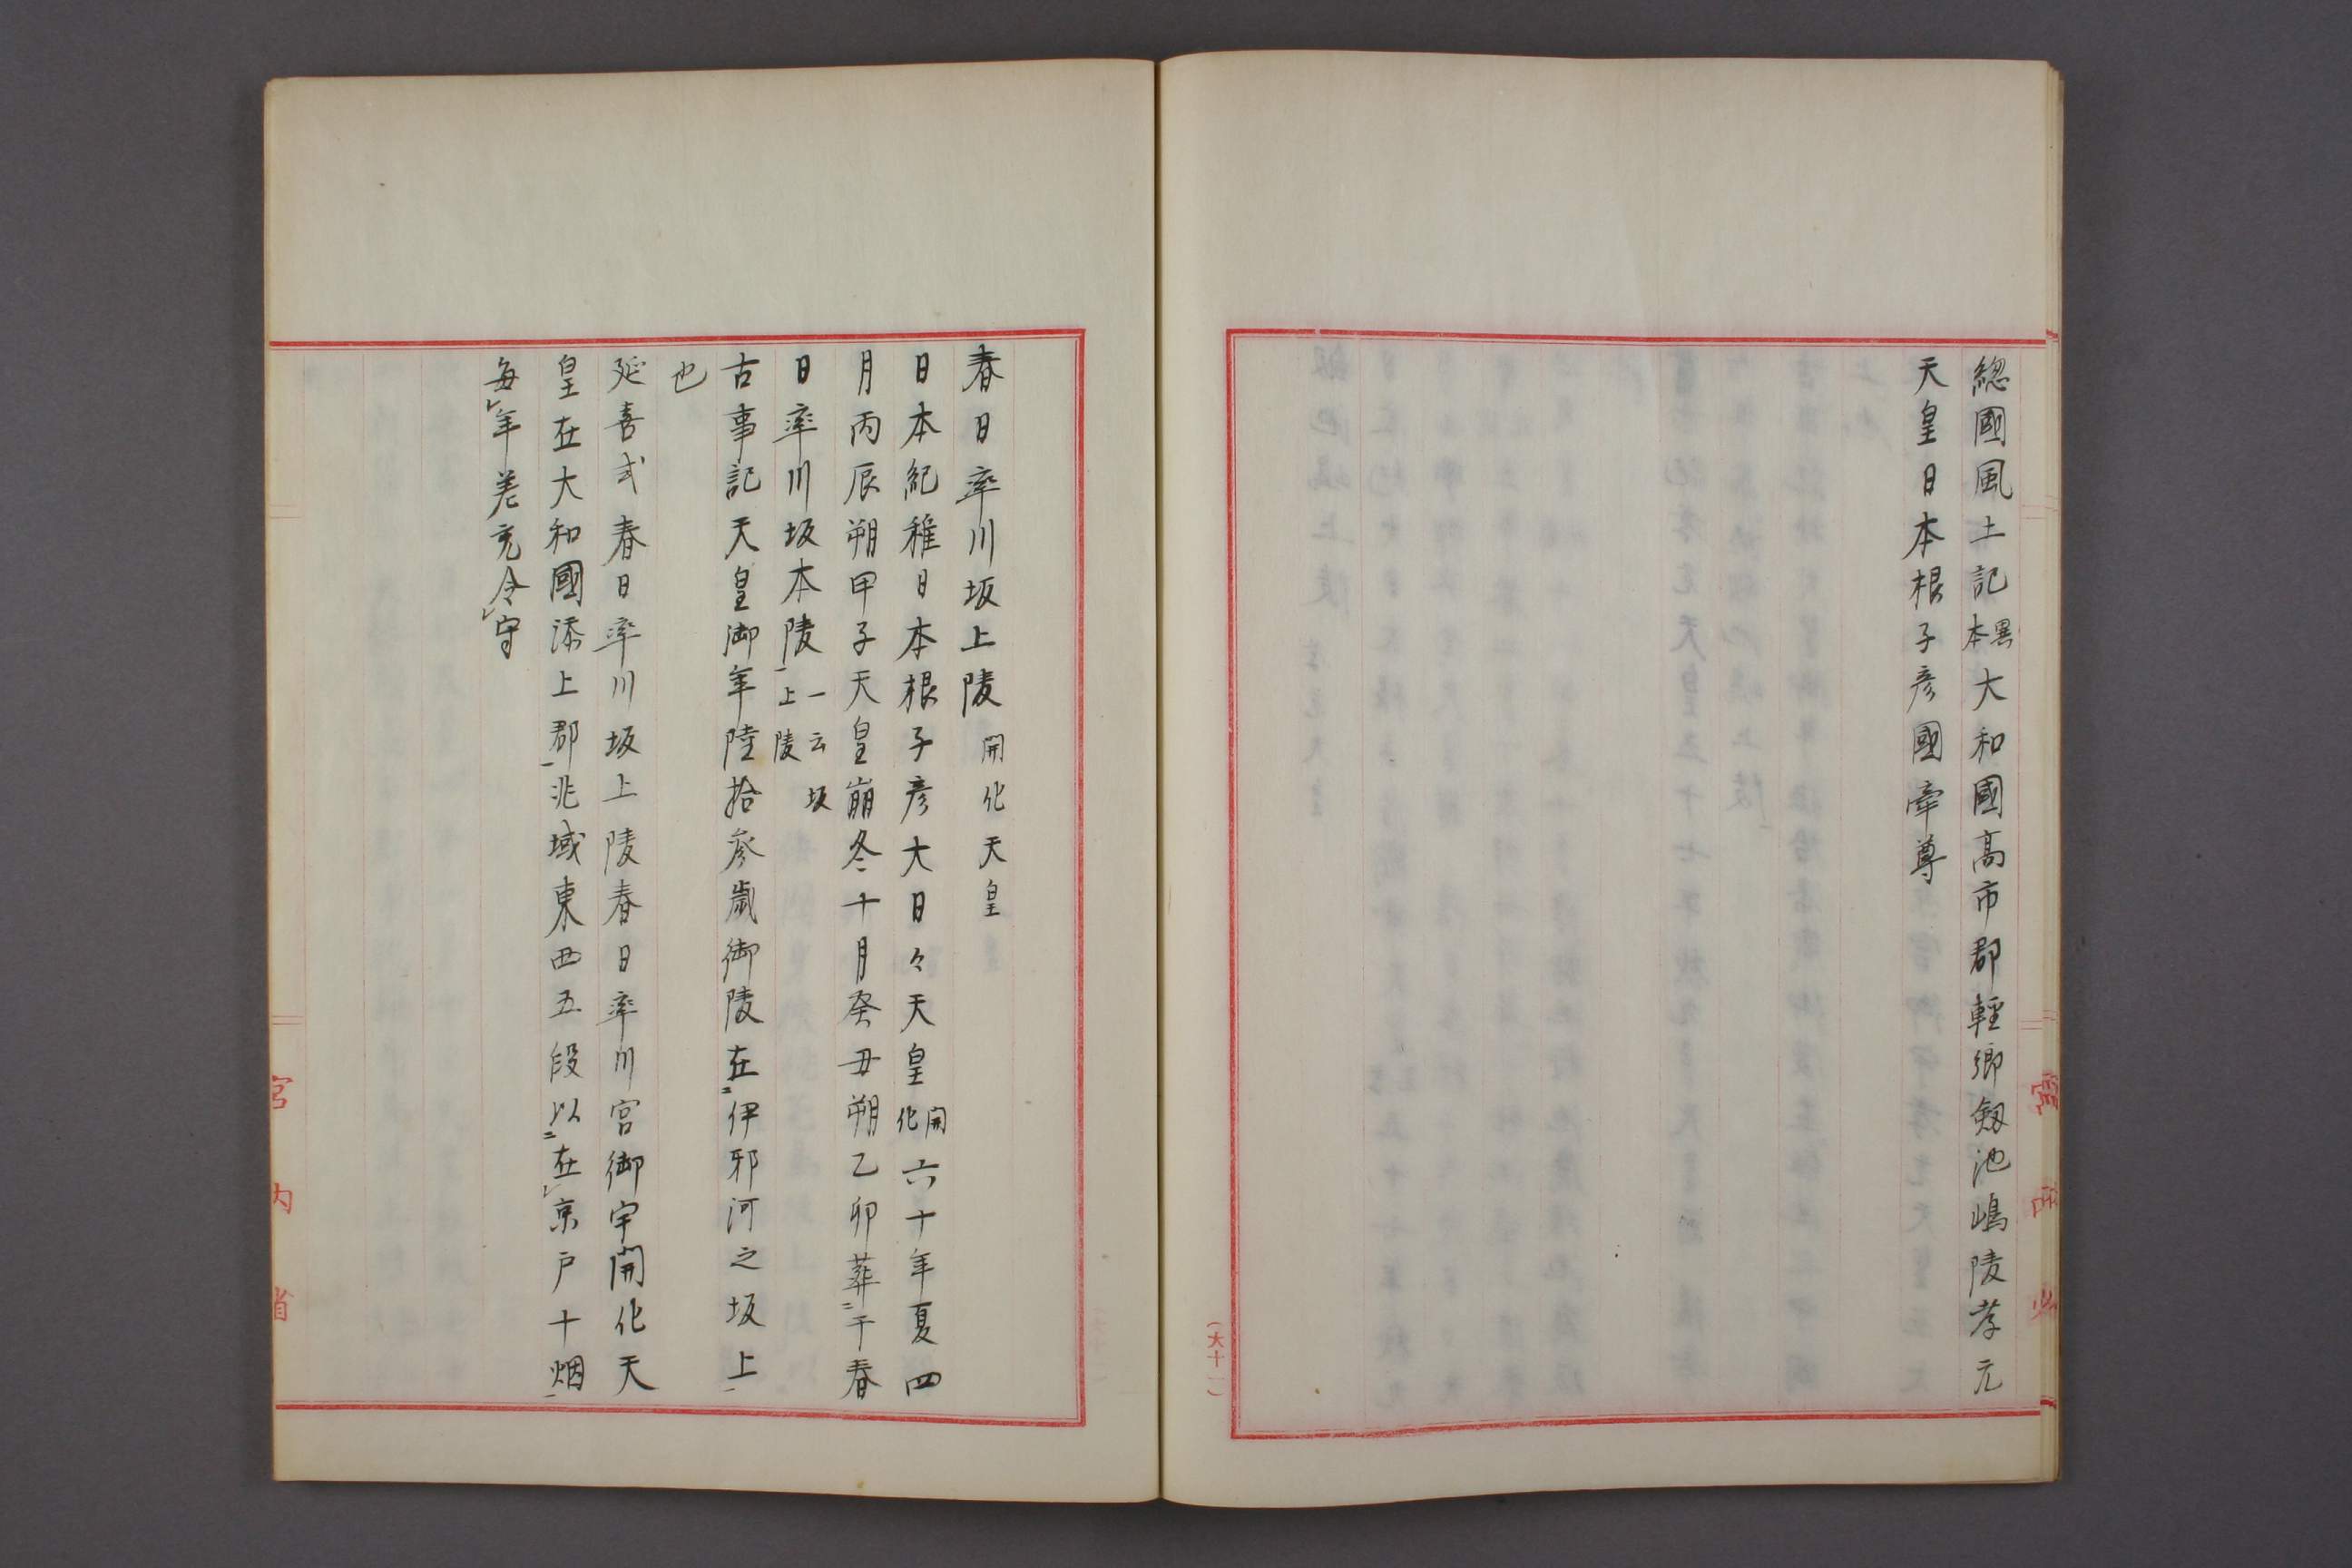 總國風土記異本大和國高市郡輕鄉劔池嶋陵孝元
天皇日本根子彦國牽尊
春日率川坂上陵 開化天皇
日本紀稚日本根子彦大日々天皇開化六十年夏四
月丙辰朔甲子天皇崩冬十月癸丑朔乙卯葬二于春
日率川坂本陵一一云坂上陵
古事記天皇御年陸拾參歳御陵在二伊邪河之坂上一
也
延喜式春日率川坂上陵春日率川宮御宇開化天
皇在大和國添上郡一兆域東西五段以二在レ京戸十烟一
毎レ年差充令レ守
宮内省
(大十一)